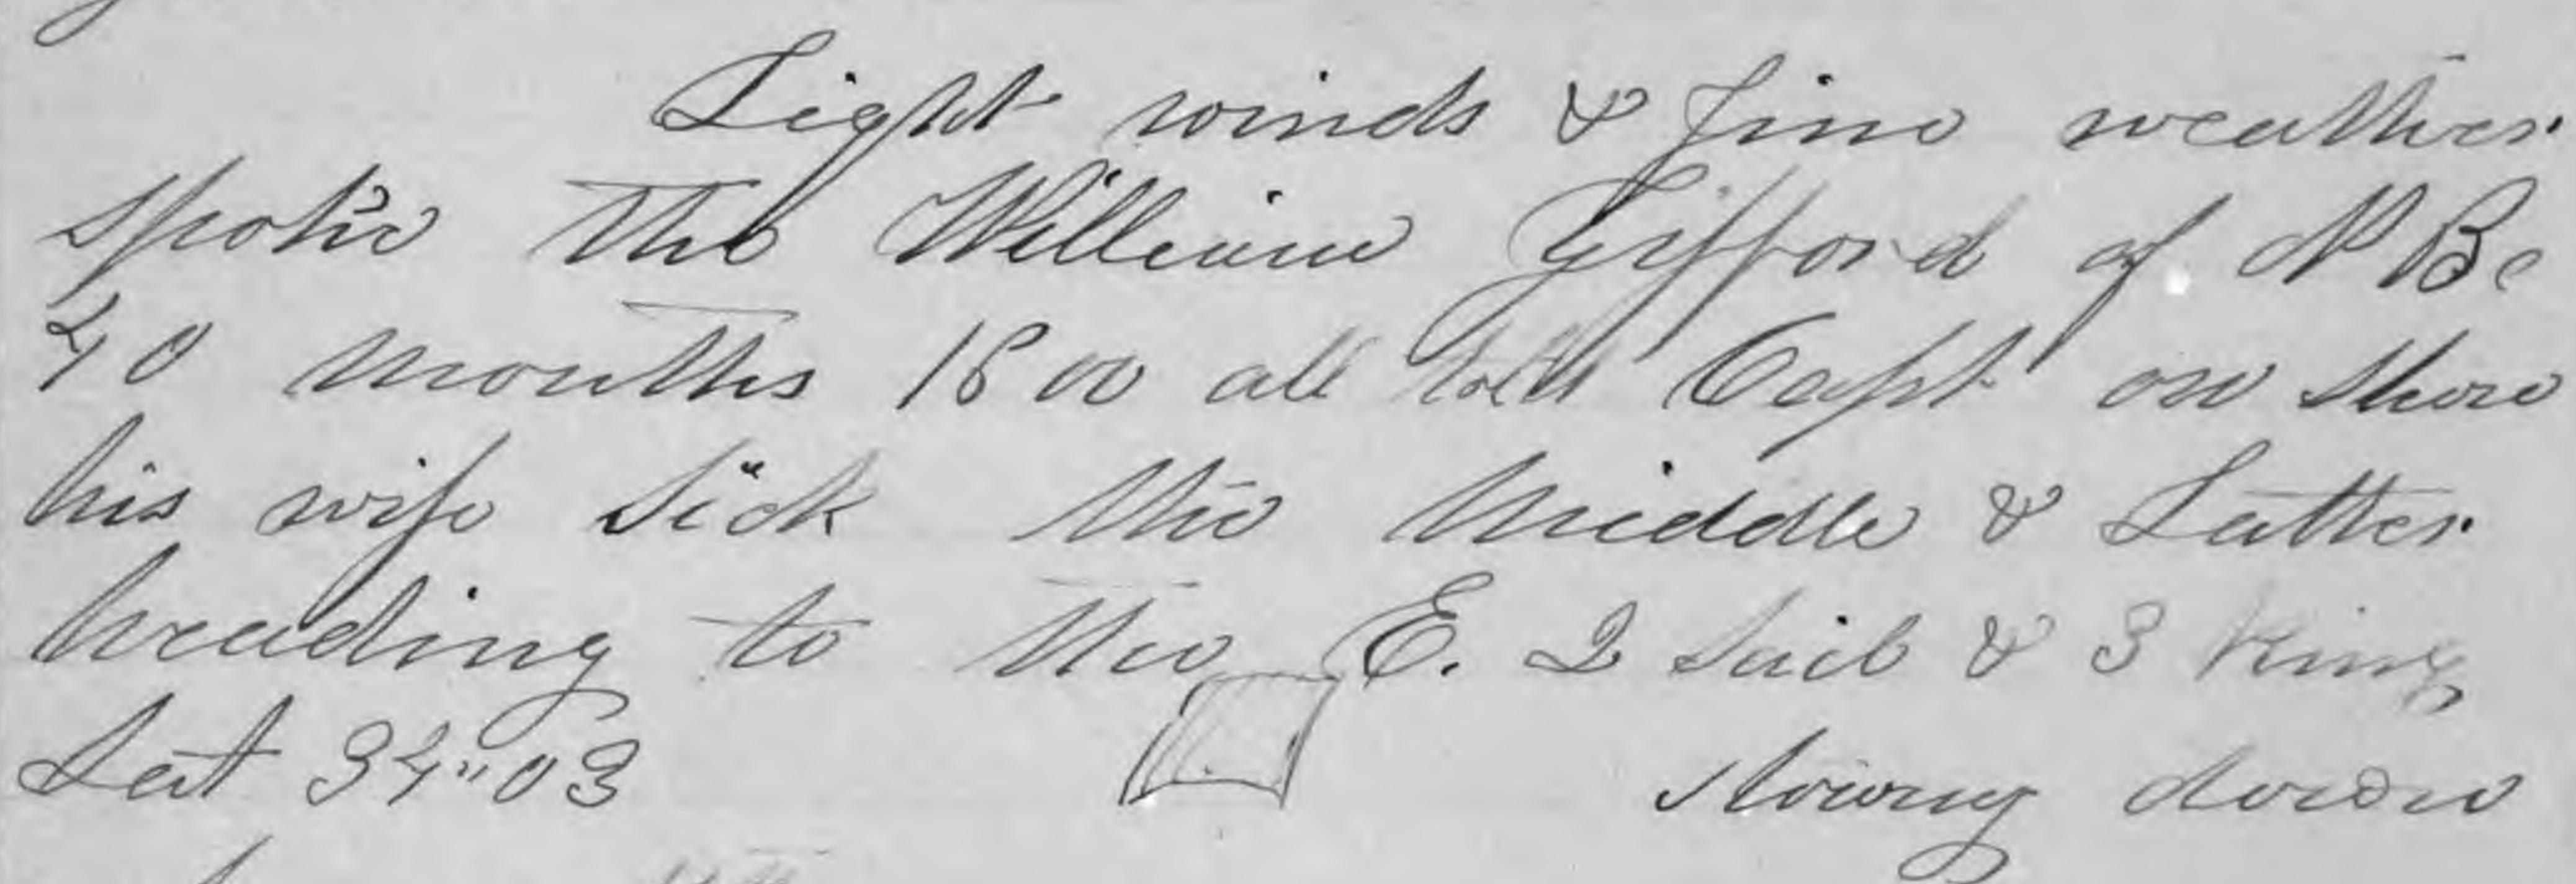 Light winds & fine weather
spoke the William Gifford of N Be
40 months 1800 all told Capt on shore
his wife Sick the Middle & Latter
heading to the E. 2 Sail &  3
Lat 34"03 stowing down